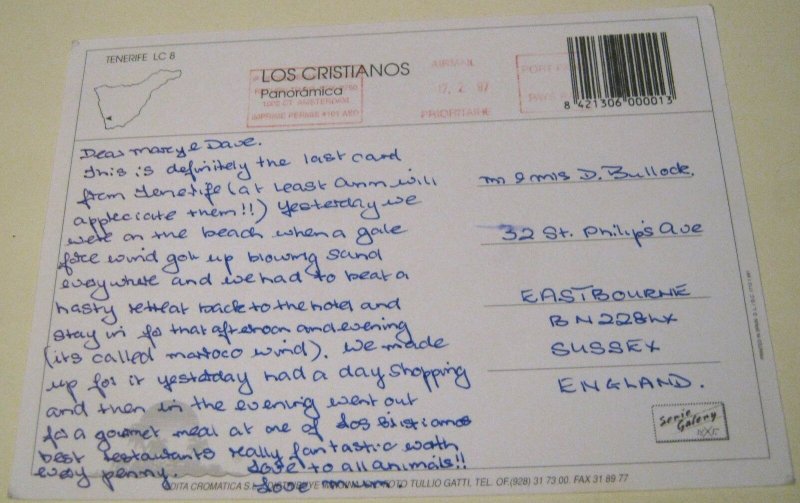 TENERIFE LC 8
LOS CRISTIANOS
Panorámica
1000 CT AMSTERDAM
AIRMAIL
17. 2. 97
PRIORITAIRE
PORT
PAYS
8 421306 000013
Dear Mary & Dave.
This is definitely the last card
from Tenerife (at least Ann will
appreciate them!!) Yesterday we
were on the beach when a gale
force wind got up blowing sand
everywhere and we had to beat a
hasty retreat back to the hotel and
stay in for that afternoon and evening
(its called morroco wind). We made
up for it yesterday had a day shopping
and then in the evening went out
for a gourmet meal at one of Los Cristianos
best restaurants really fantastic worth
every penny. Love to all animals!!
Love mum
m & mrs D. Bullock.
32 St. Philip's Ave
EASTBOURNE
BN22 8LX
SUSSEX
ENGLAND.
Serie
Galery
EDITA CROMATICA S.L. FOTO TULLIO GATTI, TEL. OF.(928) 31 73 00. FAX 31 89 77